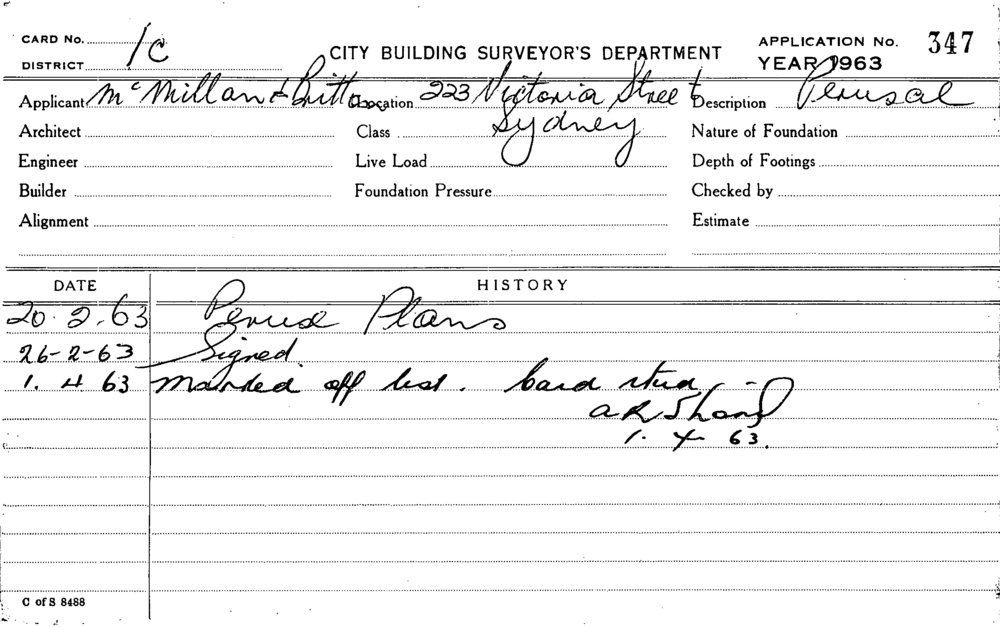 CARD No. 1c
CITY BUILDING SURVEYOR'S DEPARTMENT
APPLICATION No. 347
DISTRICT
YEAR 1963
Applicant McMillan & Britton Location 223 Victoria Street Description Perusal
Sydney
Architect Class Nature of Foundation
Engineer Live Load Depth of Footings
Builder Foundation Pressure Checked by
Alignment Estimate
DATE HISTORY
20.2.63 Peruse Plans
26-2-63 Signed
1. 4 63 Marked off list. Card
1. 4 63.
C of S 8488